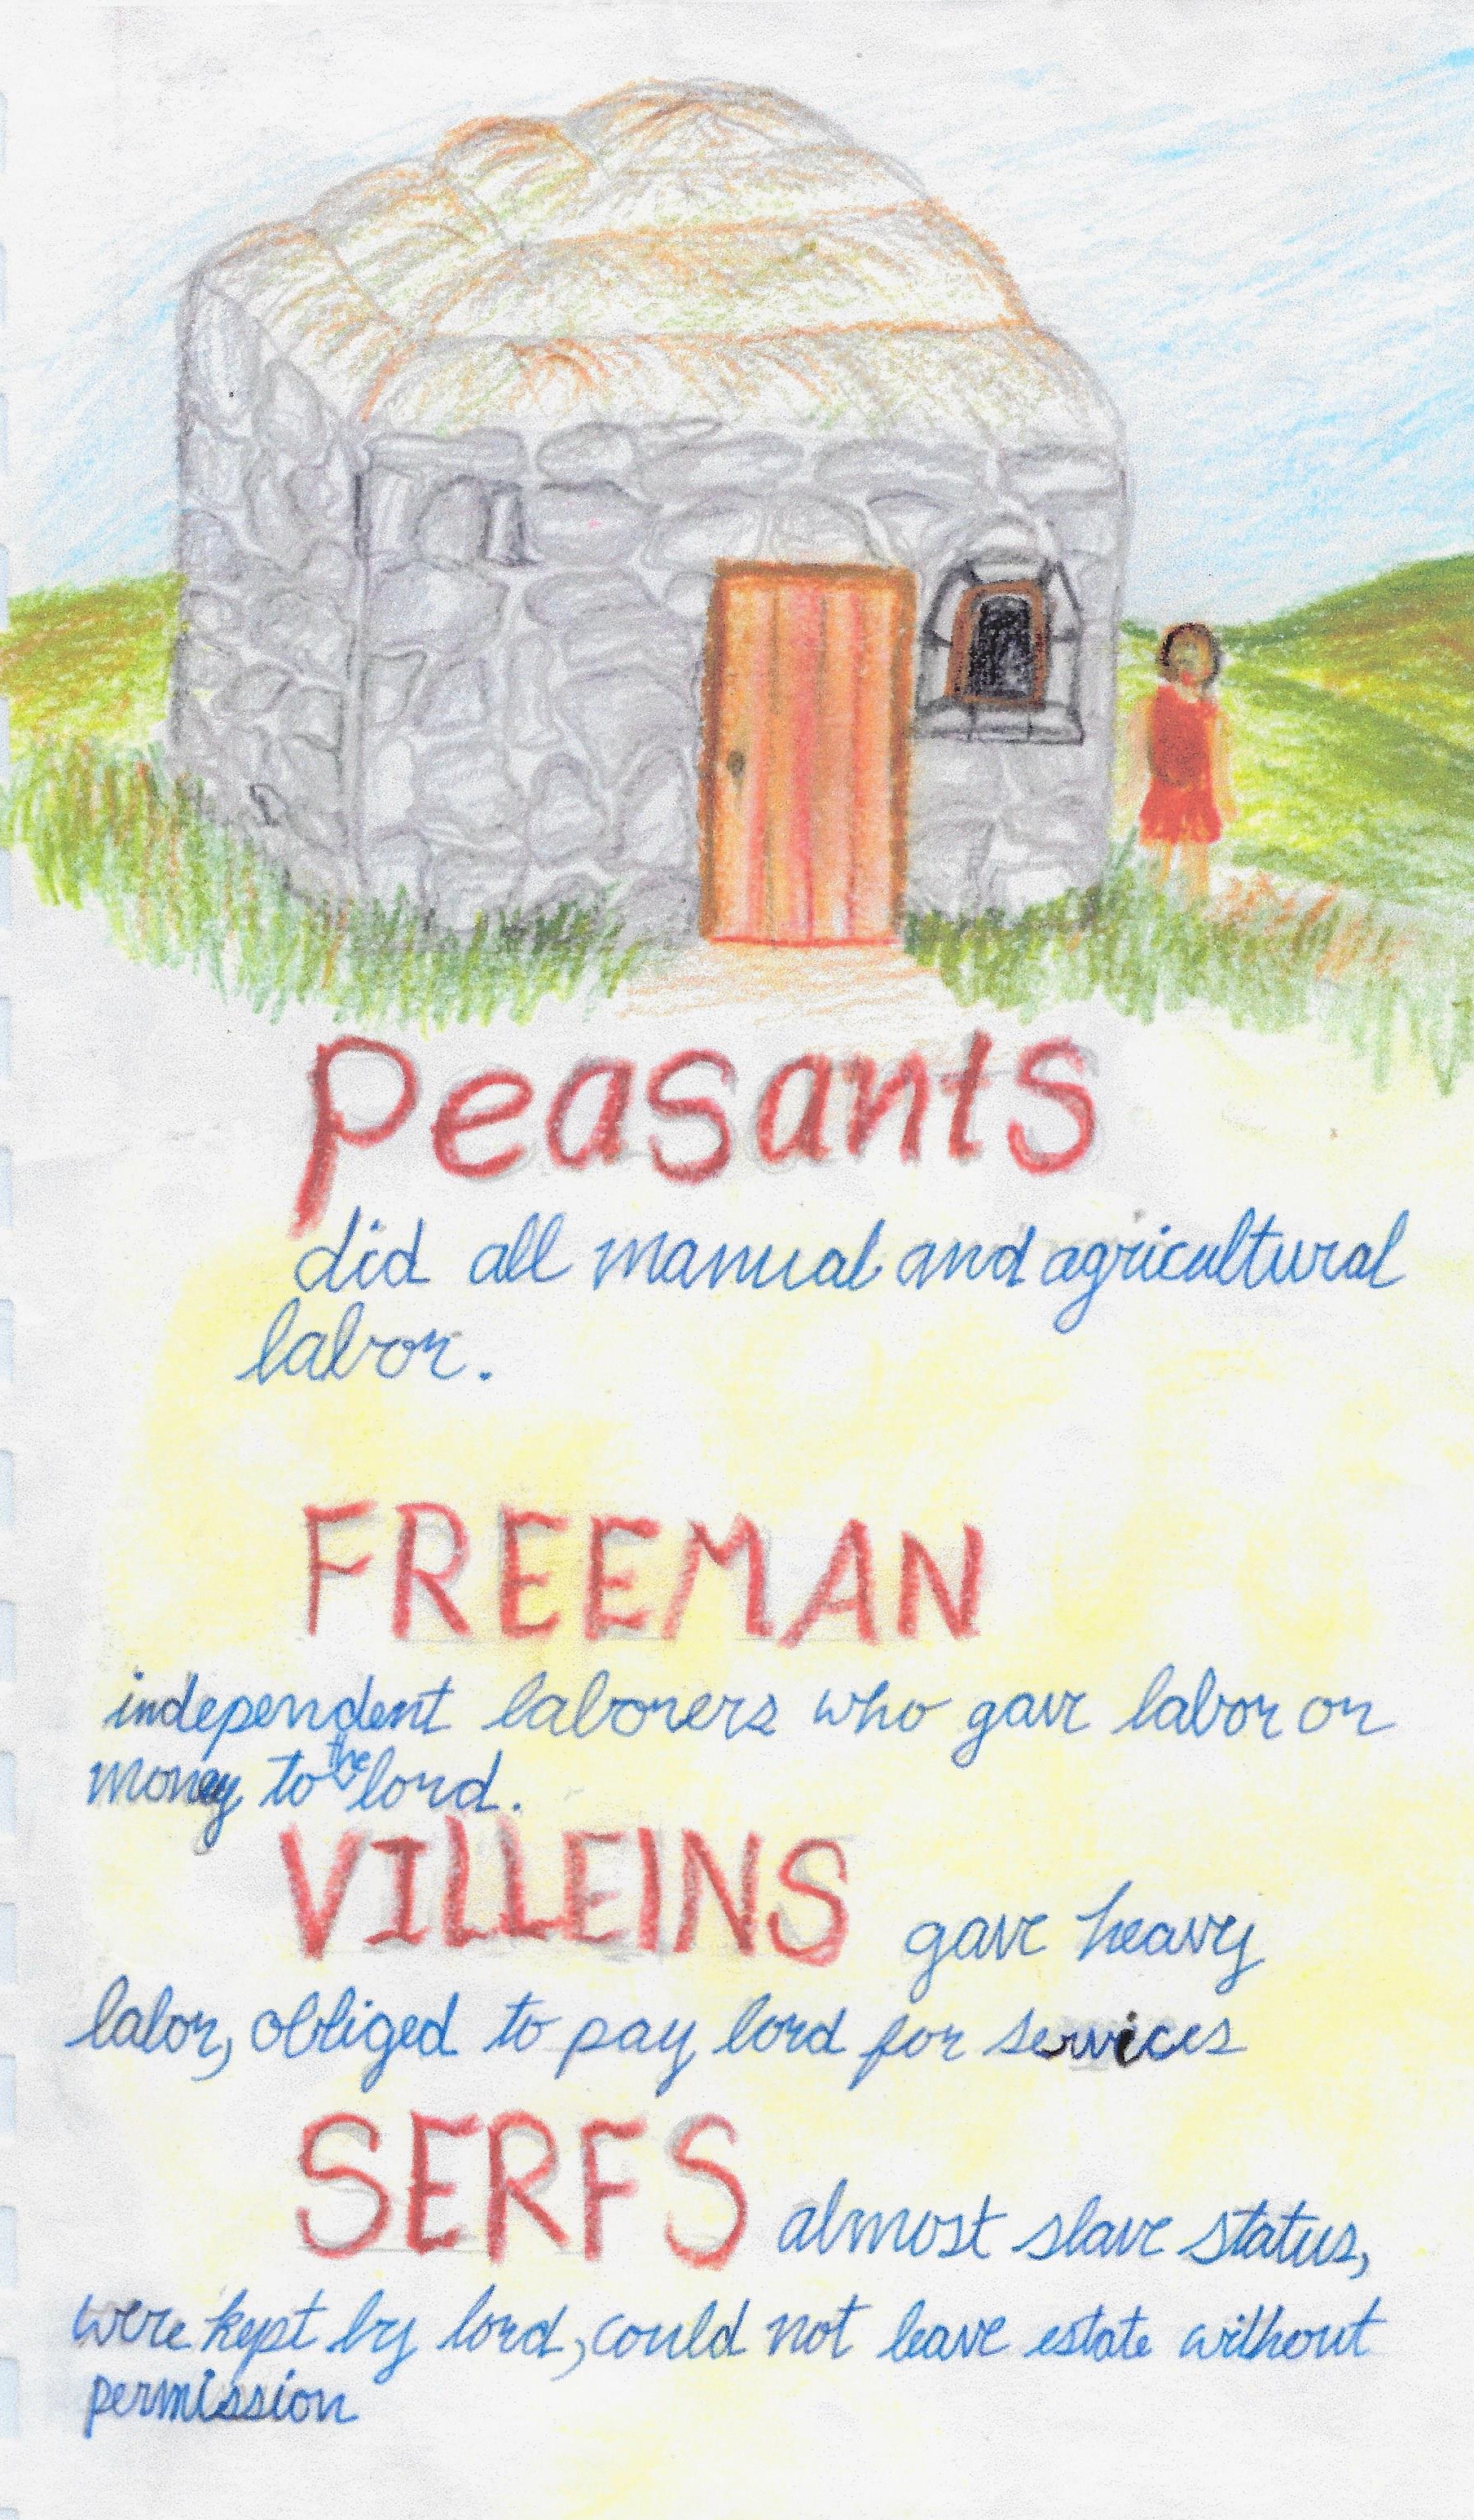 Peasants
did all manual and agricultural
labor.
FREEMAN
independent laborers who gave labor or
money to the lord.
VILLEINS gave heavy
labor, obliged to pay lord for services
SERFS almost slave status,
were kept by lord, could not leave estate without
permission